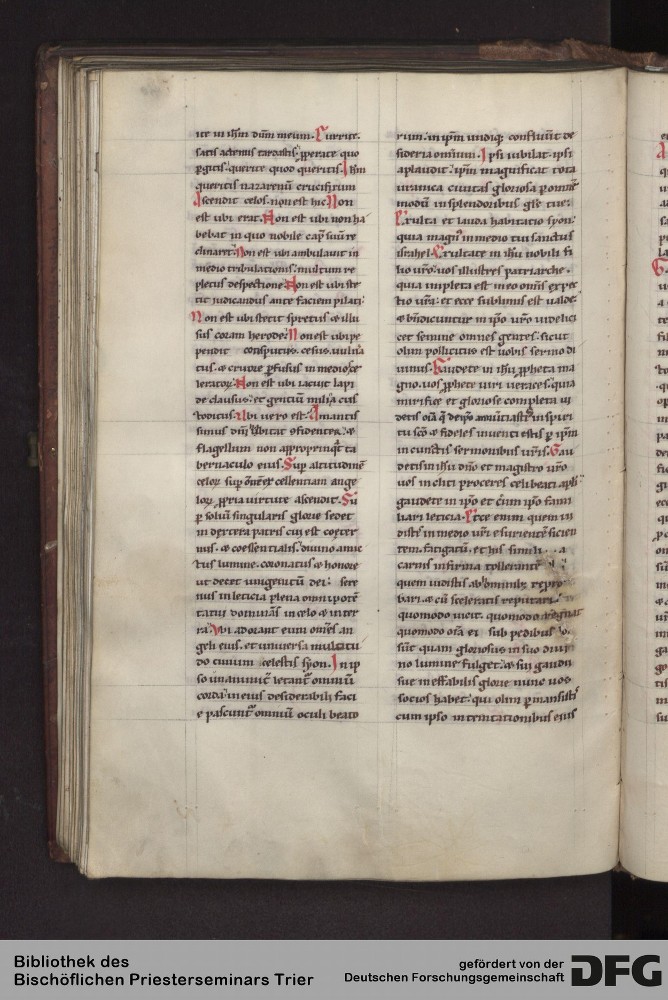 ite in ihm dnm meum. Currite.
satis actenus tardastis. pperate quo
pgitis. querite quod queritis. Ihm
queritis nazarenu crucifixum
Ascendit celos. non est hic. Non
est ubi erat. Non est ubi non ha
bebat in quo nobile cap suu re
clinaret. Non est ubi ambulauit in
medio tribulationis. multum re
pletus despectione. Non est ubi ste
tit iudicandus ante faciem pilati.
Non est ubi stetit spretus & illu
sus coram herode. Non est ubi pe
pendit consputus. cesus. uulna
tus. & cruore pfusus in medio sce
leratoru. Non est ubi iacuit lapi
de clausus. et gentiu militia cus
toditus. Ubi uero est. Amantis
simus dni habitat gfidenter. &
flagellum non appropinqt ta
bernaculo eius. Sup altitudine
celoru sup omnem excellentiam ange
loru. ppria uirtute ascendit. Su
p soliu singularis glorie sedet
in dextera patris cui est coeter
nus. & coessentialis. diuino amic
tus lumine. coronatus & honore
ut decet unigenitu dei. sere
nus in leticia plena omnipote
tatu dominans in celo & in ter
ra. Ubi adorant eum omes an
geli eius. et uniuersa multitu
do ciuium celestis syon. In ip
so unanimit letant omniu
corda. in eius desiderabili faci
e pascunt omniu oculi beato
rum. in ipm undiq; confluut de
sideria omnium. Ipsi iubilat. ipsi
aplaudit. ipm magnificat tota
uranica ciuitas gloriosa p omne
modu in splendoribus glie tue.
Exulta et lauda habitatio syon.
quia magn in medio tui sanctus
israhel. Exultate in ihu nobili fi
lio uro. uos illustres patriarche.
quia impleta est in eo omis expec
tio ura. et ecce sublimis est ualde.
& bndicuntur in ipo uro uidelici
cet semine omnes gentes. sicut
olim pollicitus est uobis sermo di
uinus. Gaudete in ihu ppheta ma
gno. uos pphete uiri ueraces. quia
mirifice et gloriose completa ui
detis oia q de ipo annuciastis in spiri
tu sco & fideles inuenti estis p ipm
in cunctis sermonibus uris. Gau
detis in ihu dno et magistro uro
uos incliti proceres celi beati apli
gaudete in ipo et cum ipo fami
liari leticia. Ecce enim quem ui
distis in medio uri esuriente sicien
tem. fatigatu. et his simili a
carnis infirma tollerante
quem uidistis ab hominibus repro
bari. & cu sceleratis reputari.
quomodo uicit. quomodo regnat
quomodo oia ei sub pedibus
sunt. quam gloriosus in suo diui
no lumine fulget. & sui gaudii
sue ineffabilis glorie nunc uos
socios habet. qui olim pmansistis
cum ipso in temtationibus eius
Bibliothek des
Bischöflichen Priesterseminars Trier
gefördert von der
Deutschen Forschungsgemeinschaft
DFG